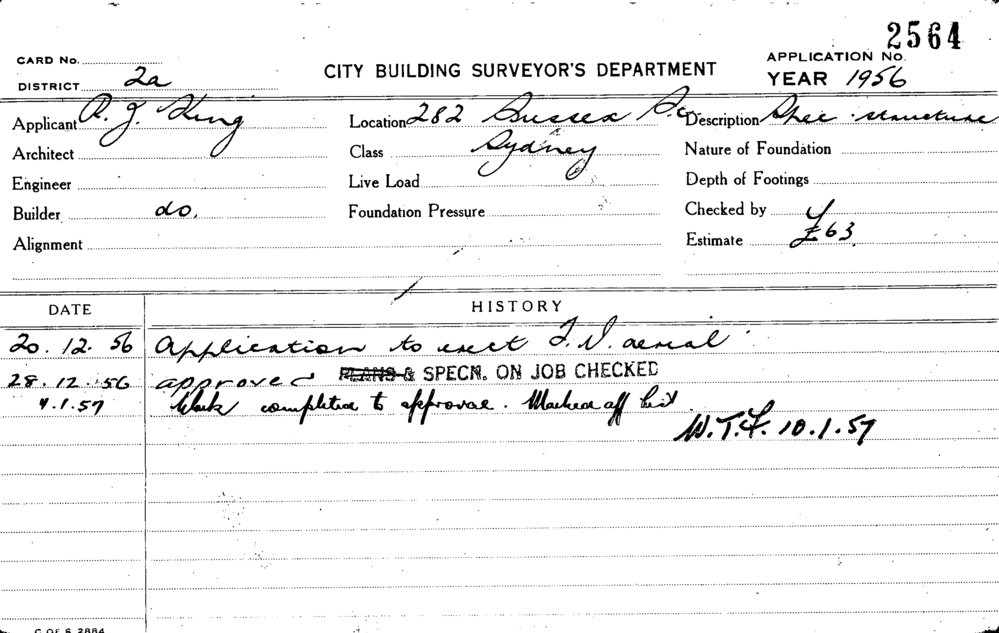 2564
CARD No.
APPLICATION No.
DISTRICT 2a
CITY BUILDING SURVEYOR'S DEPARTMENT
YEAR 1956
Applicant R. J. King
Location 282 Sussex St.
Description Spec. structure
Architect
Class Sydney
Nature of Foundation
Engineer
Live Load
Depth of Footings
Builder do.
Foundation Pressure
Checked by
Alignment
Estimate £63
DATE HISTORY
20.12.56 Application to erect T.V. aerial
28.12.56 approved PLANS & SPECN. ON JOB CHECKED
4.1.57 Work completed to approval. Marked off list
W.T.F. 10.1.57
C OF S 2884